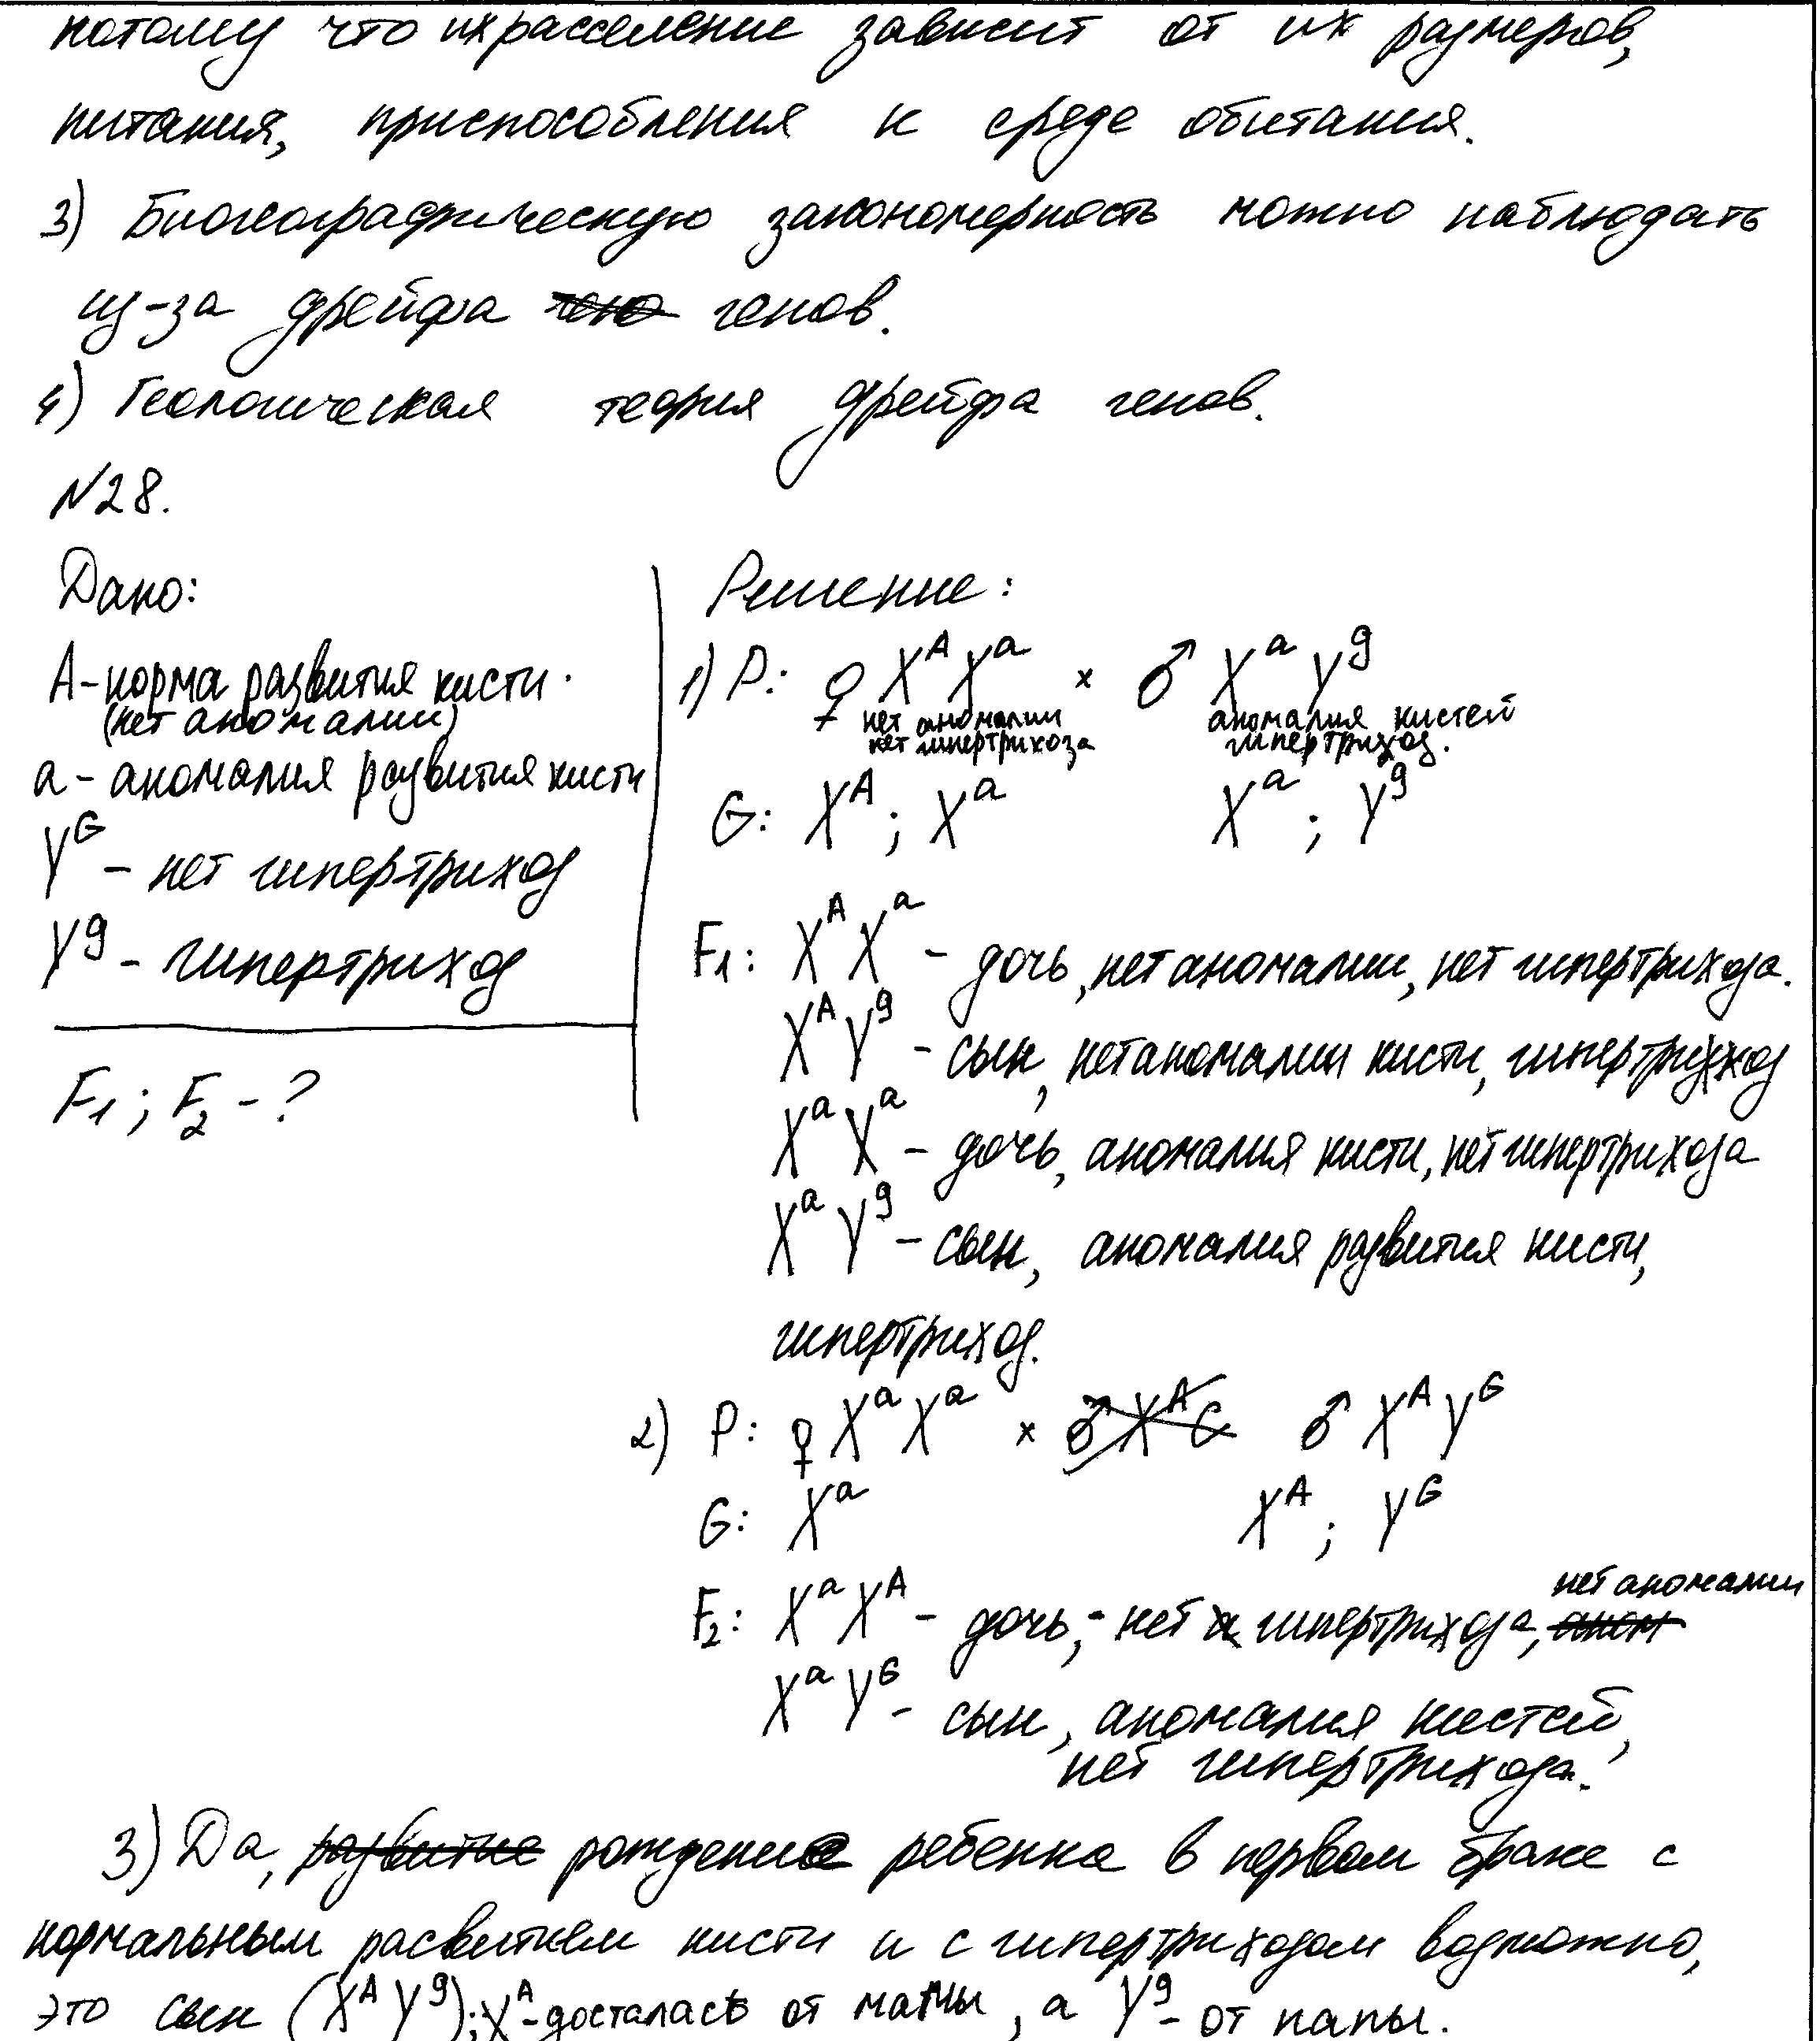 потому что их расселение зависит от их размеров,
питания, приспособления к среде обитания.
3) Биогеографическую закономерность можно наблюдать
из-за дрейфа генов.
4) Геологическая теория дрейфа генов.
№28.
Дано:
А - норма развития кисти.
(нет аномалии)
а - аномалия развития кисти
Y^G - нет гипертрихоз
Y^g - гипертрихоз
F₁; F₂ - ?
Решение:
1) P: ♀ X^A X^a × ♂ X^a Y^g
нет аномалии аномалия кистей
нет гипертрихоза гипертрихоз.
G: X^A ; X^a X^a ; Y^g
F₁: X^A X^a - дочь, нет аномалии, нет гипертрихоза.
X^A Y^g - сын, нет аномалии кисти, гипертрихоз
X^a X^a - дочь, аномалия кисти, нет гипертрихоза
X^a Y^g - сын, аномалия развития кисти,
гипертрихоз.
2) P: ♀ X^a X^a × ♂ X^A Y^G
G: X^a X^A ; Y^G
F₂: X^a X^A - дочь, - нет гипертрихоза, нет аномалии
X^a Y^G - сын, аномалия кистей,
нет гипертрихоза.
3) Да, рождение ребенка в первом браке с
нормальным расвитием кисти и с гипертрихозом возможно,
это сын (X^A Y^g); X^A - досталась от мамы, а Y^g - от папы.